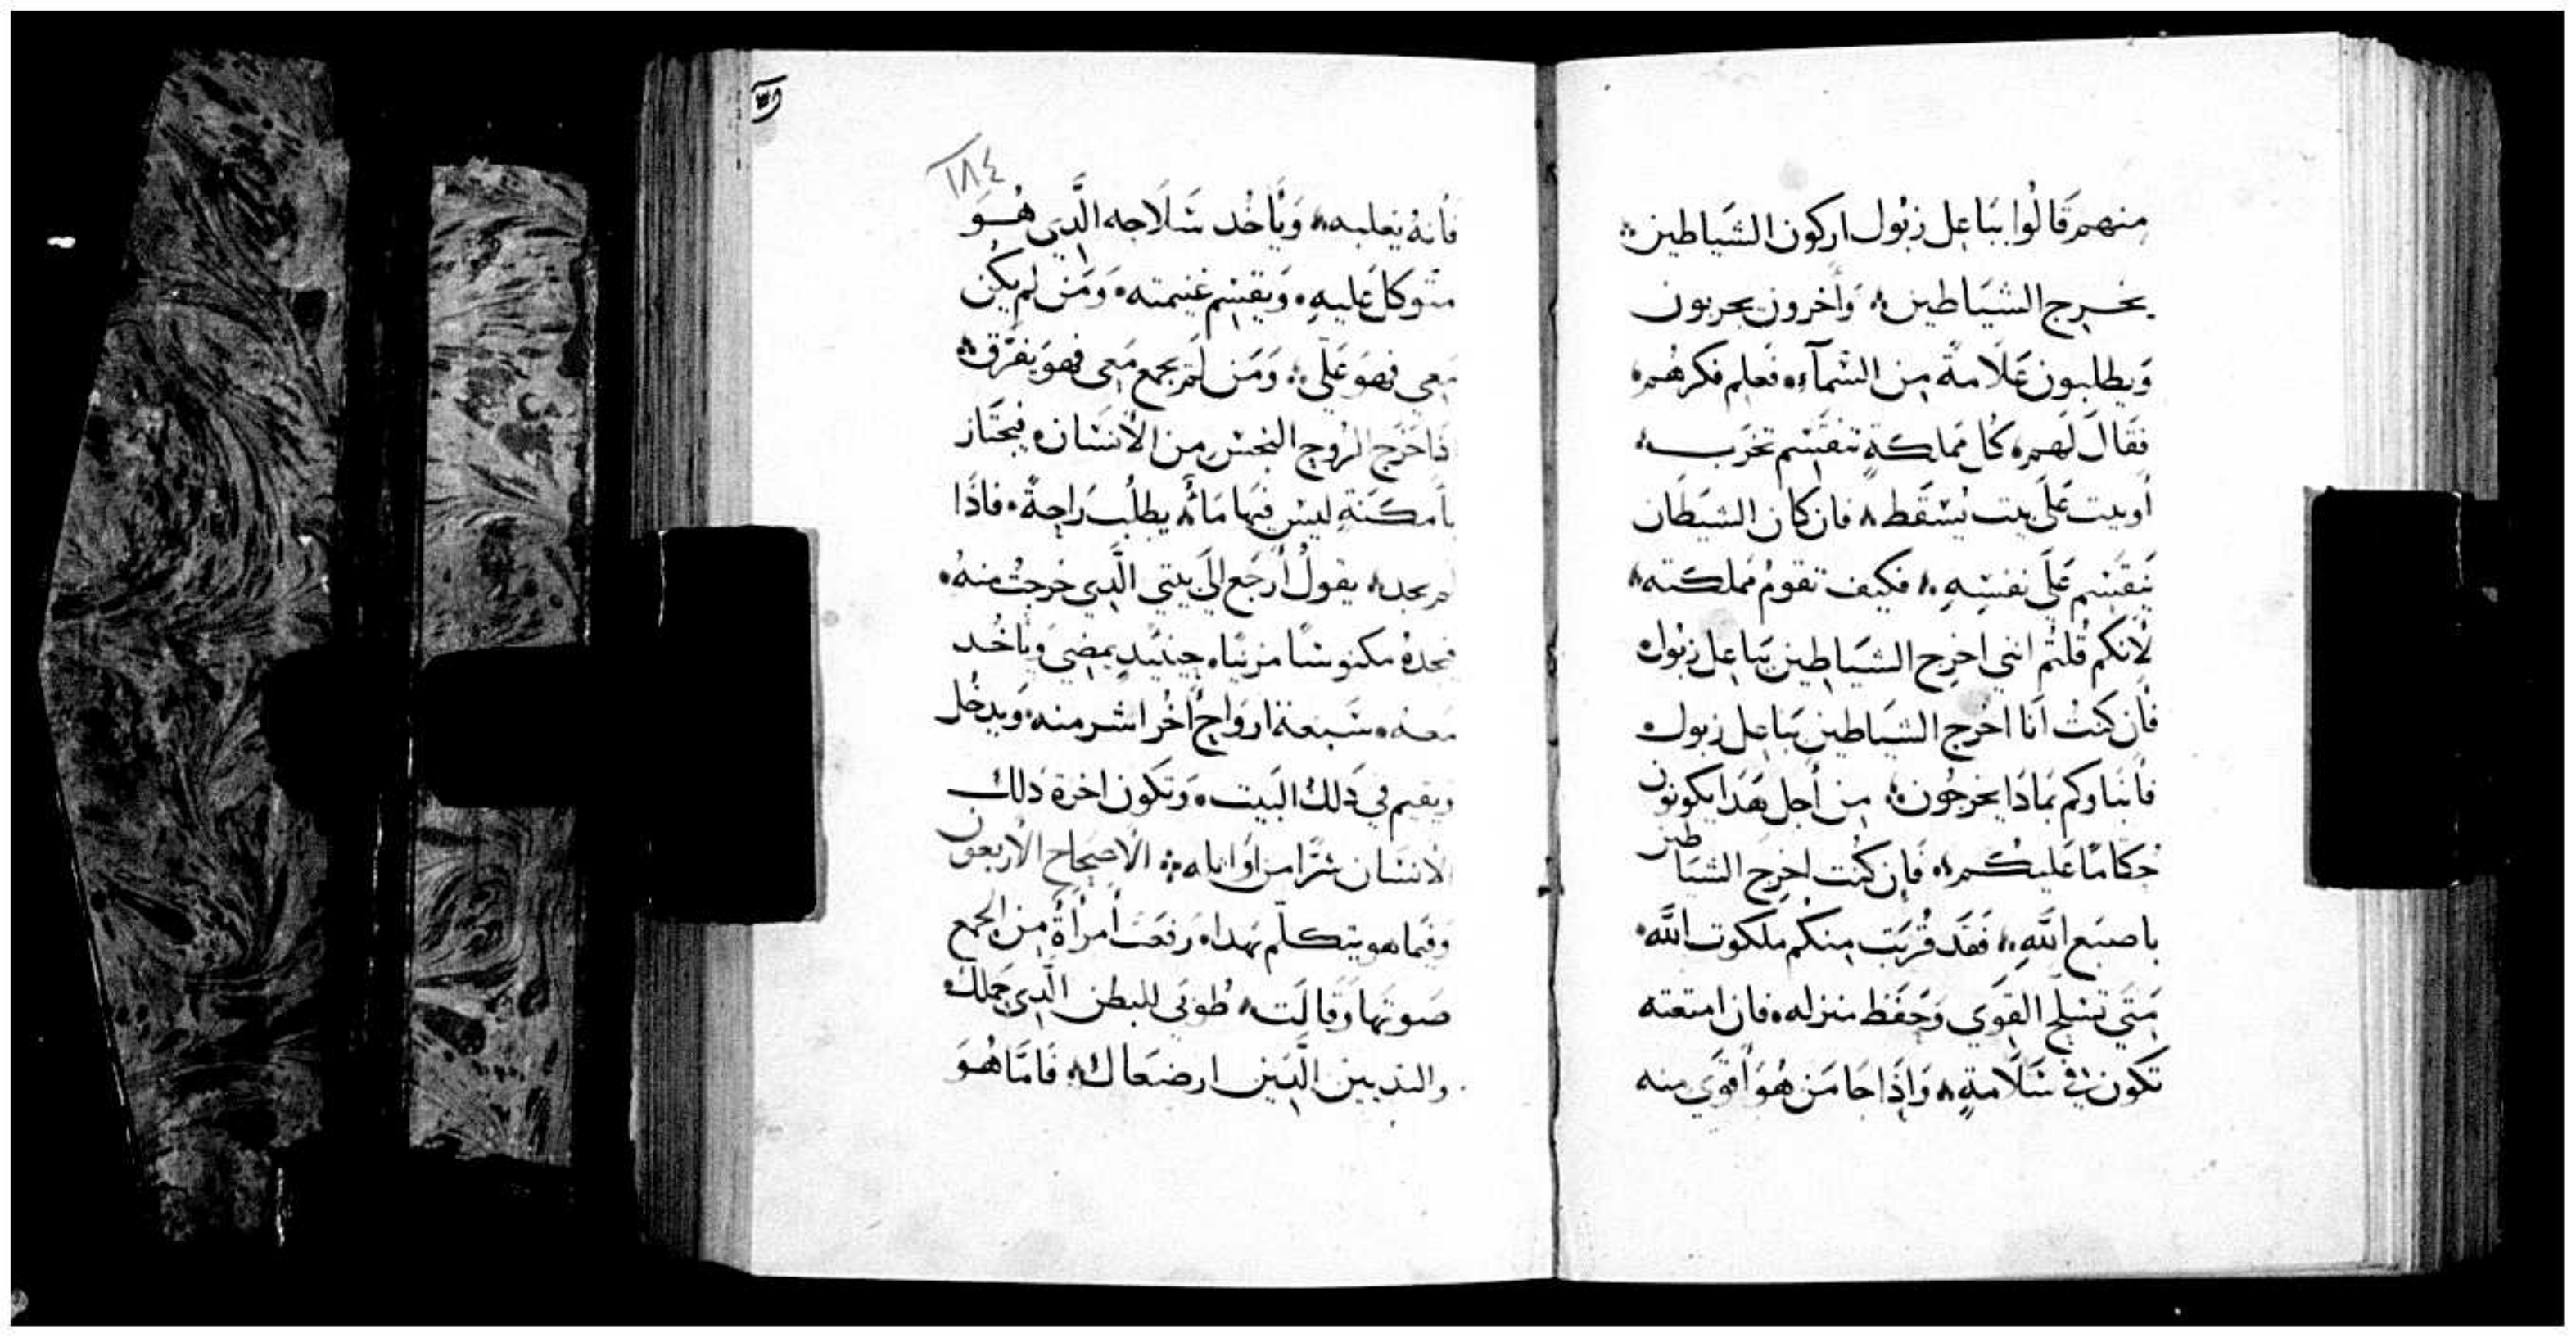 منهم قَالُوا بَبَاعِل زَبُول اركون الشَياطين
يخرج الشيَاطين وَأخرون يجربون
وَيطلبون عَلَامةً من السَمآء فعَلم فكرهُم
فقَالَ لَهم كُل مَملكةٍ تنقَسِم تخَرَب
أو بيت عَلَي بيت يَسْقَط فان كَان الشيَطَان
يَنِقَسِم عَلَي نفسِهِ فكيف تقومُ مَملكَته
لأنكم قُلتُم انني اخرِج الشيَاطين ببَاعِل زبُول
فَان كنتُ انَا اخرِج الشيَاطين بَباعِل زبول
فأنبَاوكم بمَاذَا يخرجُون من أجل هَدَا يكونون
حُكامًا عَليكُم فَإن كُنت اخرِج الشيَاطين
باصبَع اللَّهِ فَقَد قرُبَت مِنكم ملكوت اللَّه
مَتَي تسَلح القَوَي وَحَفَظ منزله فان امتعته
تكون في سَلَامةٍ وَاذَا جَا مَن هُوَ أقوَي منه
١٨٤
فَأنهُ يغلبه وَيأخُد سَلَاحه الَّدِي هُوَ
متوكل عَليهِ وَيقسِم غنيمته وَمَن لم يكُن
مَعِي فهوَ عَلَي وَمَن لَم يجمَع مَعِي فهوَ يفَرَق
ذَا خَرَج الروح النجسْ من الأنسَان فيَجتَاز
بأمكَنةٍ ليس فيَها مَاءٌ يطلُب رَاحةً فاذَا
لم يجد يقولُ أرجَع الَي بيتي الَّدِي خرجتُ منهُ
فيجدهُ مكنوسًا مزينًا حينيدٍ يمضِي وَيأخُد
مَعه سَبعة ارَواح أُخر اشر منه وَيدخُل
ويقيم في ذَلك البَيت وَتكَون اخرة ذلك
الانسَان شرًا من أوايله الأصحَاح الأربعون
وَفيَما هو يتكلّم بهدا رَفعَت أمرأة من الجمَع
صَوتهَا وَقالَت طُوبَي للبطن الَّدِي حَملك
والتديين الَّدَين ارضعَاك فَامَّا هُوَ